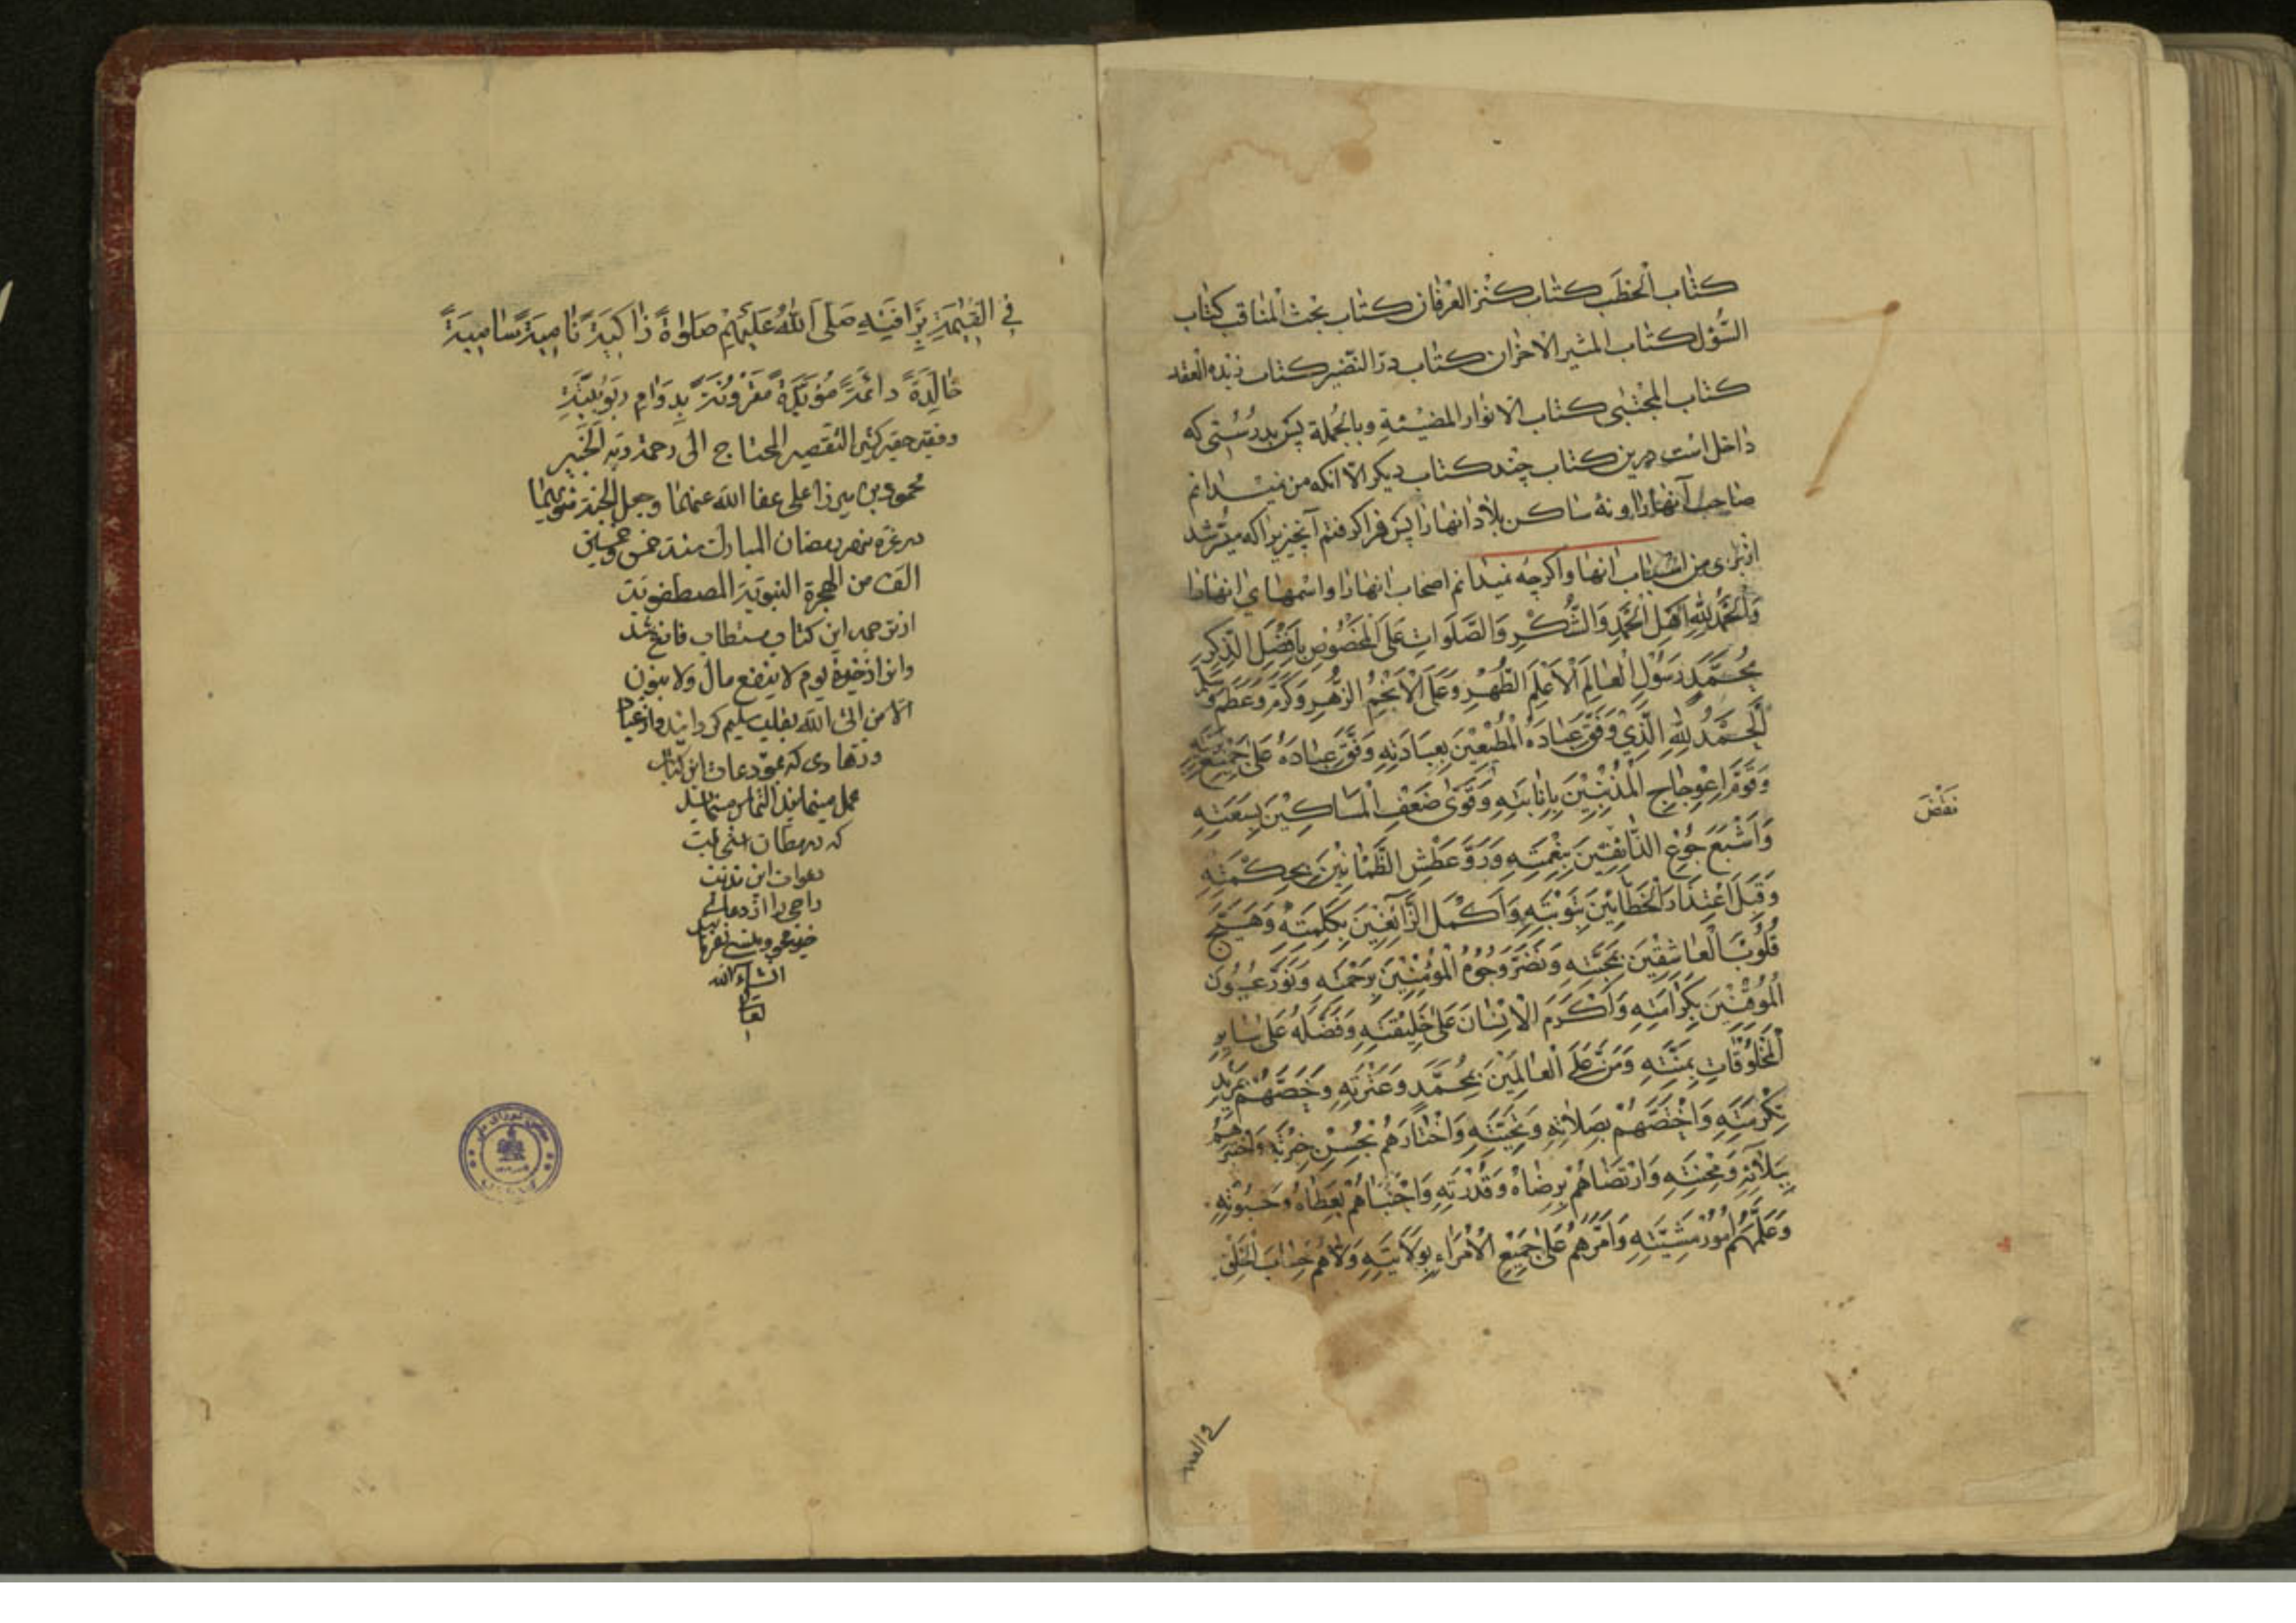 كتاب الخطب كتاب كنز العرفان كتاب بحث المناقب كتاب
السّؤل كتاب المثير الاحزان كتاب درّ النّضير كتاب زبده العقد
كتاب المجتبى كتاب الانوار المضيئة وبالجملة پس بدرستى كه
داخل است درين كتاب چند كتاب ديكر الّا آنكه من نميدانم
صاحب آنها را ونه ساكن بلاد انها را پس فرا كرفتم آنچيزيرا كه ميسّر شد
از براى من اسباب انها واكرچه نميدانم اصحاب انها را واسمهاي انها را
وَالْحَمْدُ لِلّهِ اَهْلِ الْحَمْدِ وَالشُّكْرِ وَالصَّلَوَاتِ عَلَى الْمَخْصُوصِ بِاَفْضَلِ الذِّكْرِ
مُحَمَّدٍ رَسُولِ الْعَالَمِ الْاَعْلَمِ الطُّهْرِ وَعَلَى الْاَنْجُمِ الزُّهْرِ وَكَرَّمَ وَعَظَّمَ وَسَلَّمَ
اَلْحَمْدُ لِلّهِ الَّذِي وَفَّقَ عِبَادَهُ الْمُطِيْعِيْنَ بِعِبَادَتِهِ وَفَّقَ عِبَادَهُ عَلَى جَمِيْعِ
وَقَوَّمَ اِعْوِجَاجِ الْمُذْنِبِيْنَ بِاِنَابَتِهِ وَقَوّى ضَعْفَ الْمَسَاكِيْنَ بِسَعَتِهِ
نقض
وَاَشْبَعَ جُوْعَ الذَّائِقِيْنَ بِنِعْمَتِهِ وَرَوّٰ عَطَشَ الظَّمْانِيْنَ بِحِكْمَتِهِ
وَقَبِلَ اعْتِذَارَ الْخَطَائِيْنَ بِتَوْبَتِهِ وَاَكْمَلَ الزَّائِغِيْنَ بِكَلِمَتِهِ وَهَيَّجَ
قُلُوْبَ الْعَاشِقِيْنَ بِمَحَبَّتِهِ وَنَضَّرَ وُجُوْهَ الْمُؤْمِنِيْنَ بِرَحْمَتِهِ وَنَوَّرَ عُيُوْنَ
الْمُوْقِنِيْنَ بِكَرَامَتِهِ وَاَكْرَمَ الْاِنْسَانَ عَلَى خَلِيْقَتِهِ وَفَضَّلَهُ عَلَى سَايِرِ
الْمَخْلُوْقَاتِ بِمَنِّتِهِ وَمَنَّ عَلَى الْعَالَمِيْنَ بِمُحَمَّدٍ وَعِتْرَتِهِ وَخَصَّهُمْ بِمَزِيْدِ
تَكْرِمَتِهِ وَاخْتَصَّهُمْ بِصِلَاتِهِ وَتَحِيَّتِهِ وَاخْتَارَهُمْ بِحُسْنِ خِيْرَتِهِ وَاخْتَبَرَهُمْ
بِبَلَائِهِ وَمِحْنَتِهِ وَارْتَضَاهُمْ بِرِضَاهُ وَقُدْرَتِهِ وَاجْتَبَاهُمْ بِعَطَاهُ وَحَبْوَتِهِ
وَعَلَّمَهُمْ اُمُوْرَ مَشِيَّتِهِ وَاَمَّرَهُمْ عَلَى جَمِيْعِ الْاُمَرَاءِ بِوَلَايَتِهِ وَوَلَّاهُمْ حِسَابَ الْخَلْقِ
في القِيٰمَةِ بِرَافَتِهِ صَلَى اَللّهُ عَلَيْهِمْ صَلٰوةً زَاكِيَةً نَامِيَةً سَامِيَةً
خَالِدَةً دائمةً مُؤبَّدَةً مَقْرُوْنَةً بِدَوَامِ رَبُوْبِيَّتِهِ
وفقير حقير كثير التقصير المحتاج الى رحمة ربّه الخَبير
محمود بن ميرزا على عفا الله عنهما وجعل الجنة مثويهما
در غرّه شهر رمضان المبارك سنة خمس وخمسين
الف من الهجرة النبويّة المصطفويّة
از ترجمه اين كتاب مستطاب فارغ شد
واز ذخيرۀ يوم لا ينفع مال ولا بنون
الّا من اتى الله بقلب سليم كردانيد واز عباد
وزهادى كه بمودعات اين كتاب
عمل مينمايند التماس مينمايد
كه در مظان استجابت
دعوات اين مذنب
راجى را از دعاى
خير محو ومنسى نفرمايند
انشاء الله
تعالى